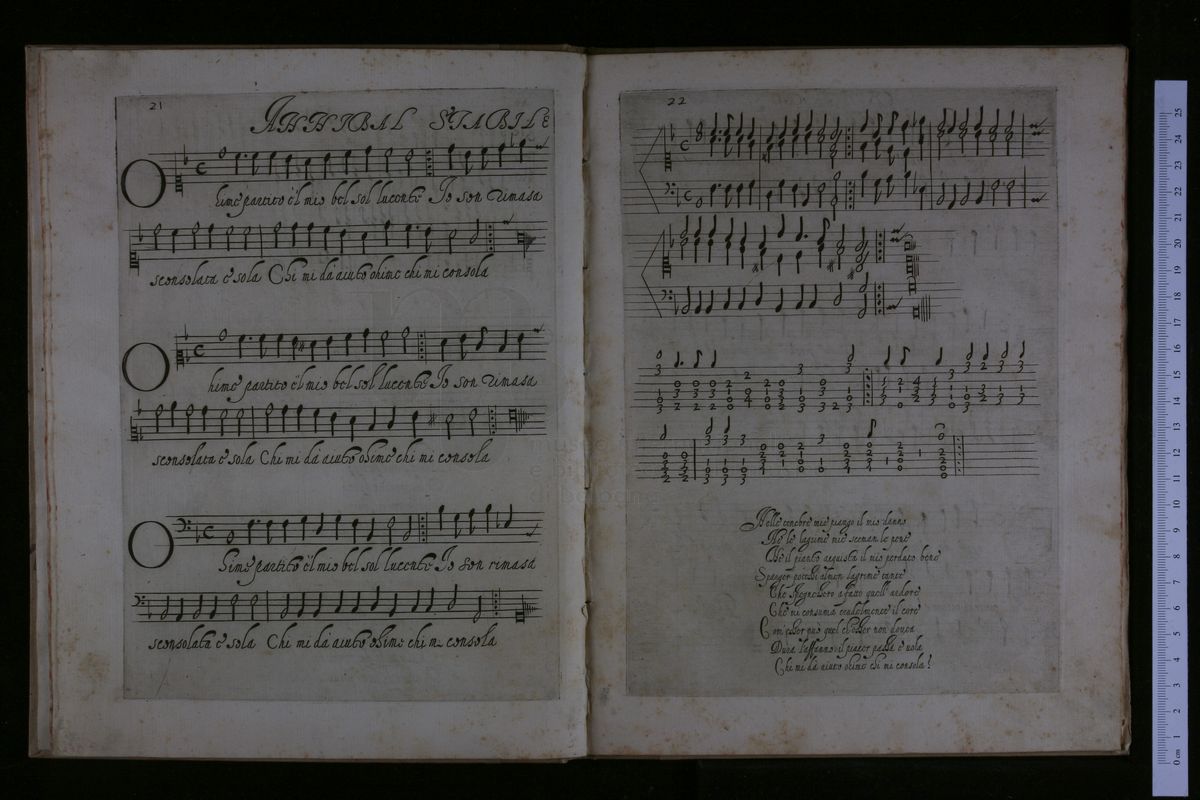 21
ANNIBAL STABILE
Ohime partito è'l mio bel sol lucente Io son rimasa
sconsolata e sola Chi mi da aiuto ohime chi mi consola
Ohime partito è'l mio bel sol lucente Io son rimasa
sconsolata e sola Chi mi da aiuto ohime chi mi consola
Ohime partito è'l mio bel sol lucente Io son rimasa
sconsolata e sola Chi mi da aiuto ohime chi me consola
22
Nelle tenebre mie piango il mio danno
Ne le lagrime mie sceman le pene
Ne il pianto acquista il mio perduto bene
Spanger potessi almen lagrime tante
Che spegnessero a fatto quell' ardore
Che mi consuma crudelmente il core
Com' esser può quel ch'esser non
Dura l'affanno e'l piacer passa e vola
Chi mi da aiuto ohime chi mi consola!